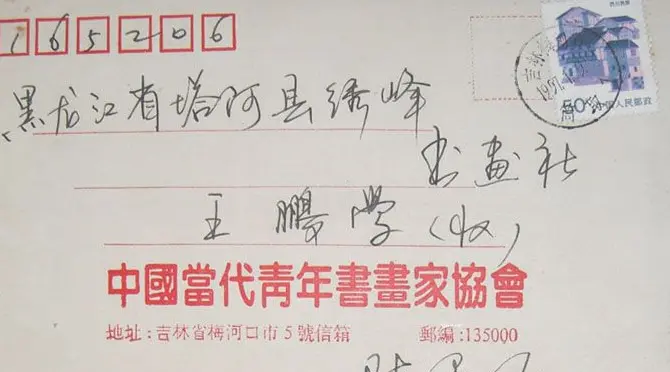 165206
黑龙江省塔河县绣峰
书画社
王鹏学(收)
中國當代靑年書畫家協會
地址:吉林省梅河口市5號信箱 郵編:135000
50分 中国人民邮政
吉林